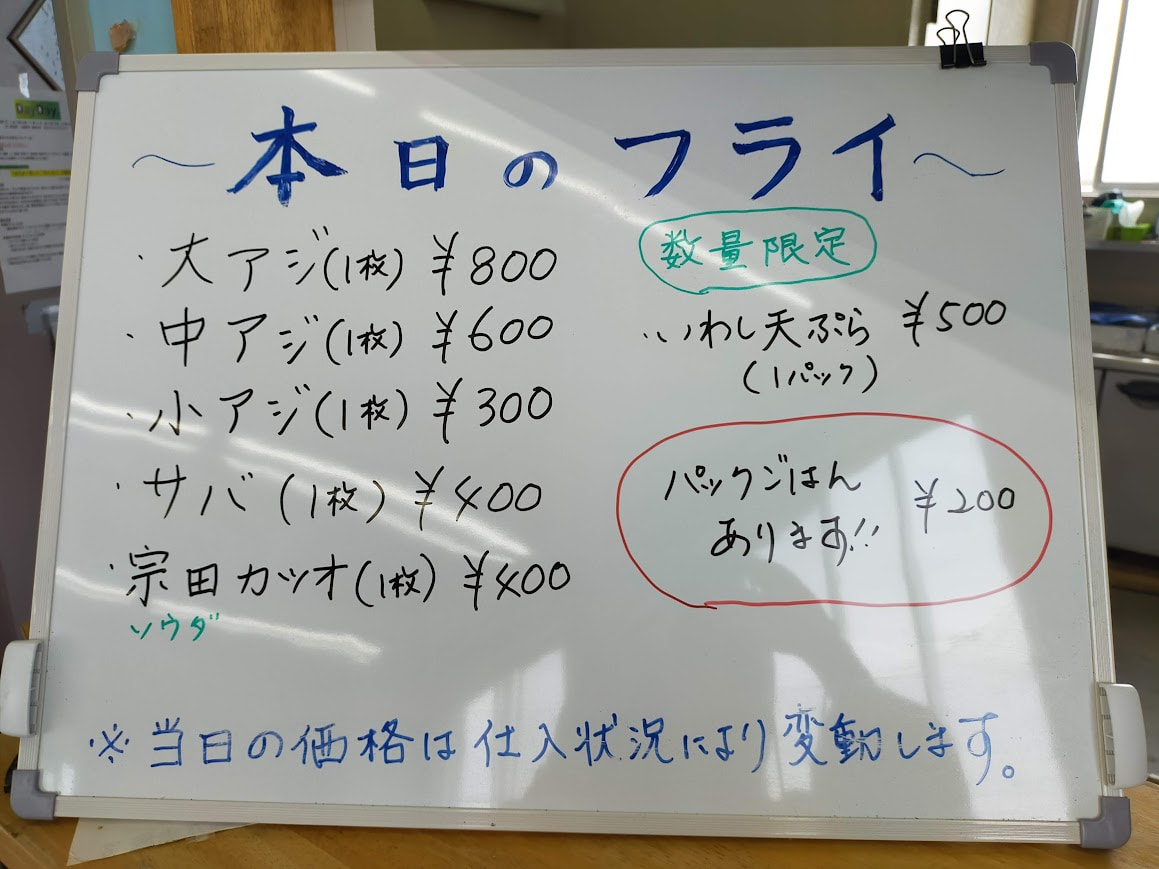 ～本日のフライ～
・大アジ(1枚) ¥800
・中アジ(1枚) ¥600
・小アジ(1枚) ¥300
・サバ(1枚) ¥400
・宗田カツオ(1枚) ¥400
ソウダ
数量限定
・いわし天ぷら ¥500
(1パック)
パックごはん
あります!! ¥200
※当日の価格は仕入状況により変動します。